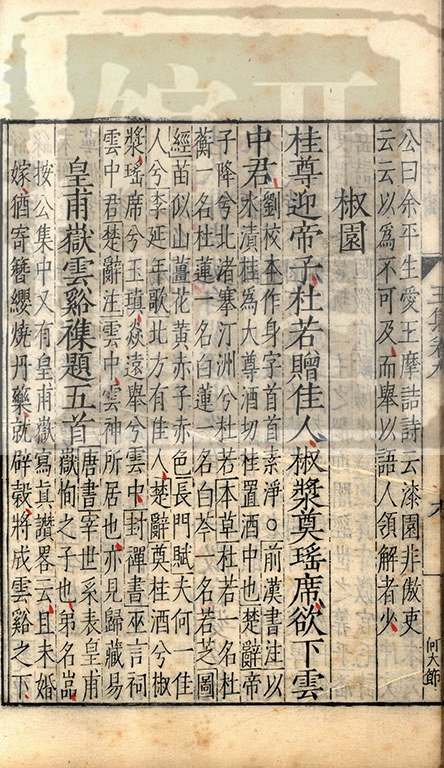 公曰余平生愛王摩詰詩云漆園非傲吏
云云以為不可及而舉以語人領解者少
椒園
桂尊迎帝子杜若贈佳人椒漿奠瑤席欲下雲
中君
劉校本作身字首首素淨○前漢書注以
水漬桂為大尊酒切桂置酒中也楚辭帝
子降兮北渚搴汀洲兮杜若本草杜若一名杜
蘅一名杜蓮一名白蓮一名白芩一名若芝圖
經苗似山薑花黃赤子赤色長門賦夫何一佳
人兮李延年歌北方有佳人楚辭奠桂酒兮椒
漿瑤席兮玉瑱焱遠舉兮雲中封禪書巫言祠
雲中君楚辭注雲中雲神所居也亦見歸藏易
皇甫嶽雲谿襍題五首
唐書宰世系表皇甫
嶽恂之子也弟名嵓
按公集中又有皇甫嶽寫真讚畧云且未婚
嫁猶寄簪纓燒丹藥就辟穀將成雲谿之下
何大節